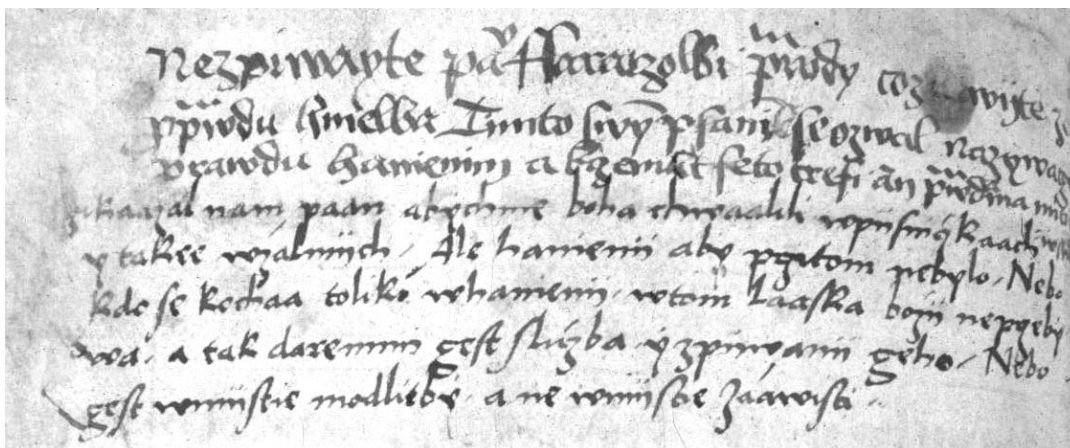 Nezpiwayte pa Ffararzolbi prawdy coz wijte
prawdu Tiimto swym psanim se ozwal nazywage
prawdu hanienim a kzemst se to trefi an
ukaazal nam paan abychme boha chwaalili wpiisnickaach
y takee wzialmijch. Ale hanienij aby przitom nebylo. Nebo
kdo se kochaa toliko whanieni. wtom laaska bozij neprzeby
wa. a tak daremnij gest sluzba y zpiwanij geho. Nebo
gest wmijstie modlitby. a ne wmijstie zaawisti.